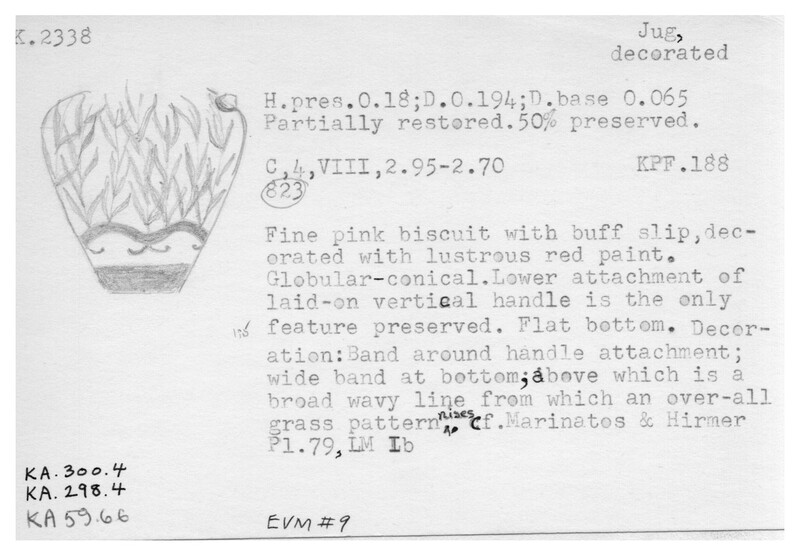 K.2338
Jug,
decorated
H.pres.0.18;D.0.194;D.base 0.065
Partially restored.50% preserved.
C,4,VIII,2.95-2.70 KPF.188
823
Fine pink biscuit with buff slip,dec-
orated with lustrous red paint.
Globular-conical.Lower attachment of
laid-on vertical handle is the only
feature preserved. Flat bottom. Decor-
ation:Band around handle attachment;
wide band at bottom;above which is a
broad wavy line from which an over-all
rises
grass pattern. Cf.Marinatos & Hirmer
Pl.79,LM Ib
KA.300.4
KA.298.4
KA59.66
EVM#9